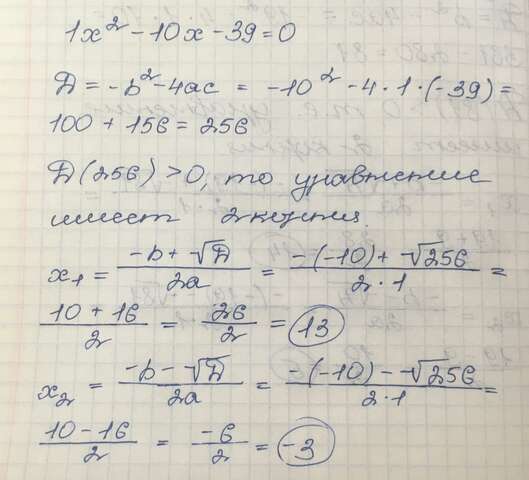 1x² - 10x - 39 = 0
D = -b² - 4ac = -10² - 4 · 1 · (-39) =
100 + 156 = 256
D (256) > 0, то уравнение
имеет 2 корния
x₁ = (-b + √D)/2a = (-(-10) + √256)/(2 · 1) =
(10 + 16)/2 = 26/2 = 13
x₂ = (-b - √D)/2a = (-(-10) - √256)/(2 · 1) =
(10 - 16)/2 = -6/2 = -3